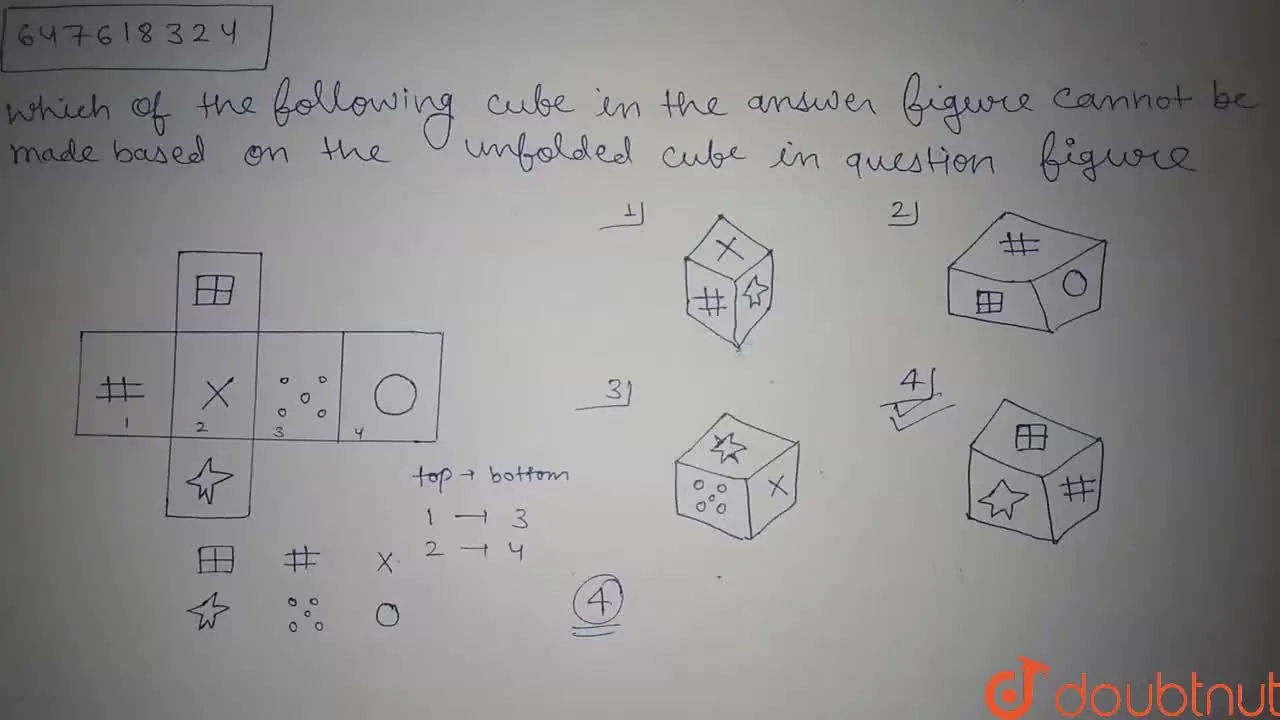 647618324
which of the following cube in the answer figure cannot be
made based on the unfolded cube in question figure
1)
2)
#
X
#
O
#
X
1
2
3
4
3)
4)
X
#
top → bottom
1 → 3
2 → 4
# X
O
4
doubtnut